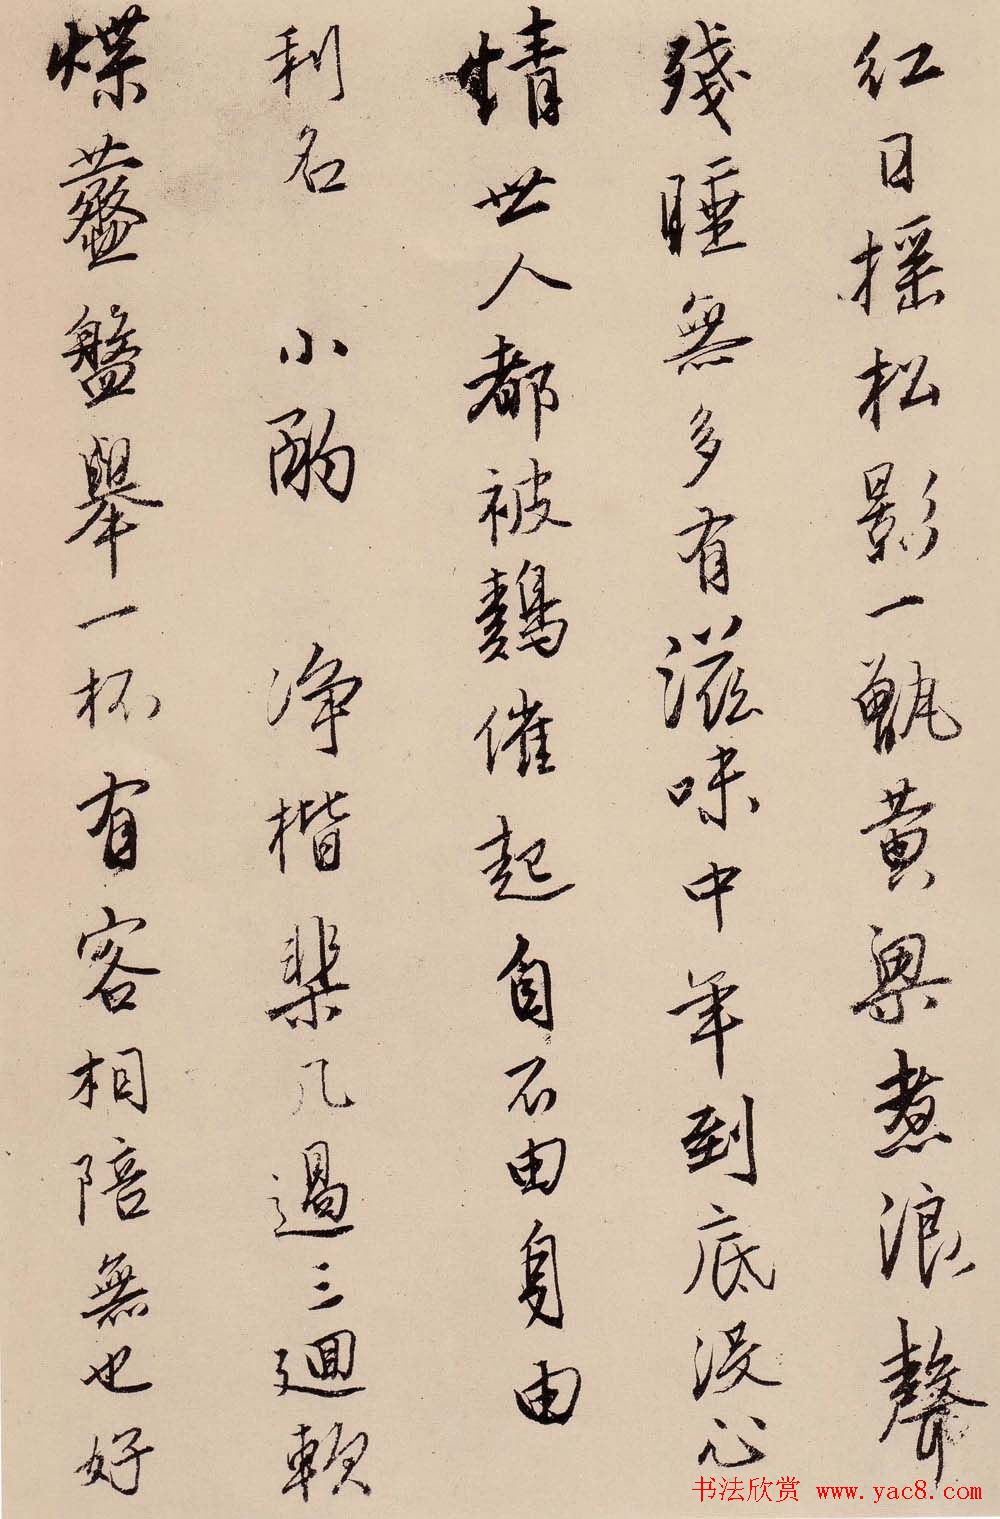 红日摇松影一甑黄粱煮浪聲
殘睡無多有滋味中年到底没心
情世人都被鷄催起自不由身由
利名 小酌 净楷棐几過三廻軟
煠虀盤舉一杯有客相陪無也好
书法欣赏 www.yac8.com